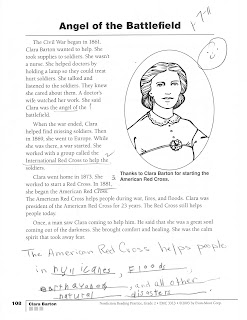 Angel of the Battlefield
The Civil War began in 1861.
Clara Barton wanted to help. She
took supplies to soldiers. She wasn't
a nurse. She helped doctors by
holding a lamp so they could treat
hurt soldiers. She talked and
listened to the soldiers. They knew
she cared about them. A doctor's
wife watched her work. She said
Clara was the angel of the
battlefield.
When the war ended, Clara
helped find missing soldiers. Then
in 1869, she went to Europe. While
she was there, a war started. She
worked with a group called the
International Red Cross to help the
soldiers.
Thanks to Clara Barton for starting the
American Red Cross.
Clara went home in 1873. She
worked to start a Red Cross. In 1881,
she began the American Red Cross.
The American Red Cross helps people during war, fires, and floods. Clara was
president of the American Red Cross for 23 years. The Red Cross still helps
people today.
Once, a man saw Clara coming to help him. He said that she was a great soul
coming out of the darkness. She brought comfort and healing. She was the calm
spirit that took away fear.
The American Red Cross helps people
in Floods,
and all other
natural disasters.
102 Clara Barton